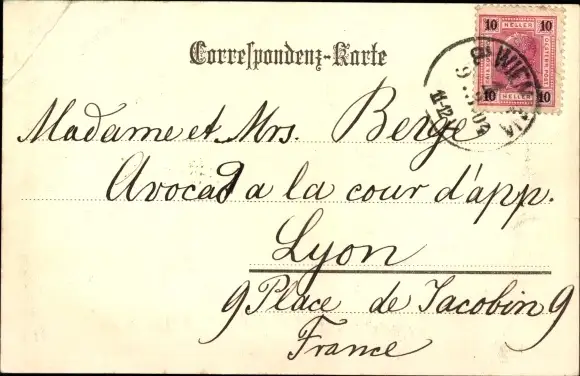 Correspondenz-Karte
10 HELLER 10
10 HELLER 10
8 WIEN
9
11-12
Madame et Mrs. Berge
Avocat a la cour d'app.
Lyon
9 Place de Jacobin 9
France